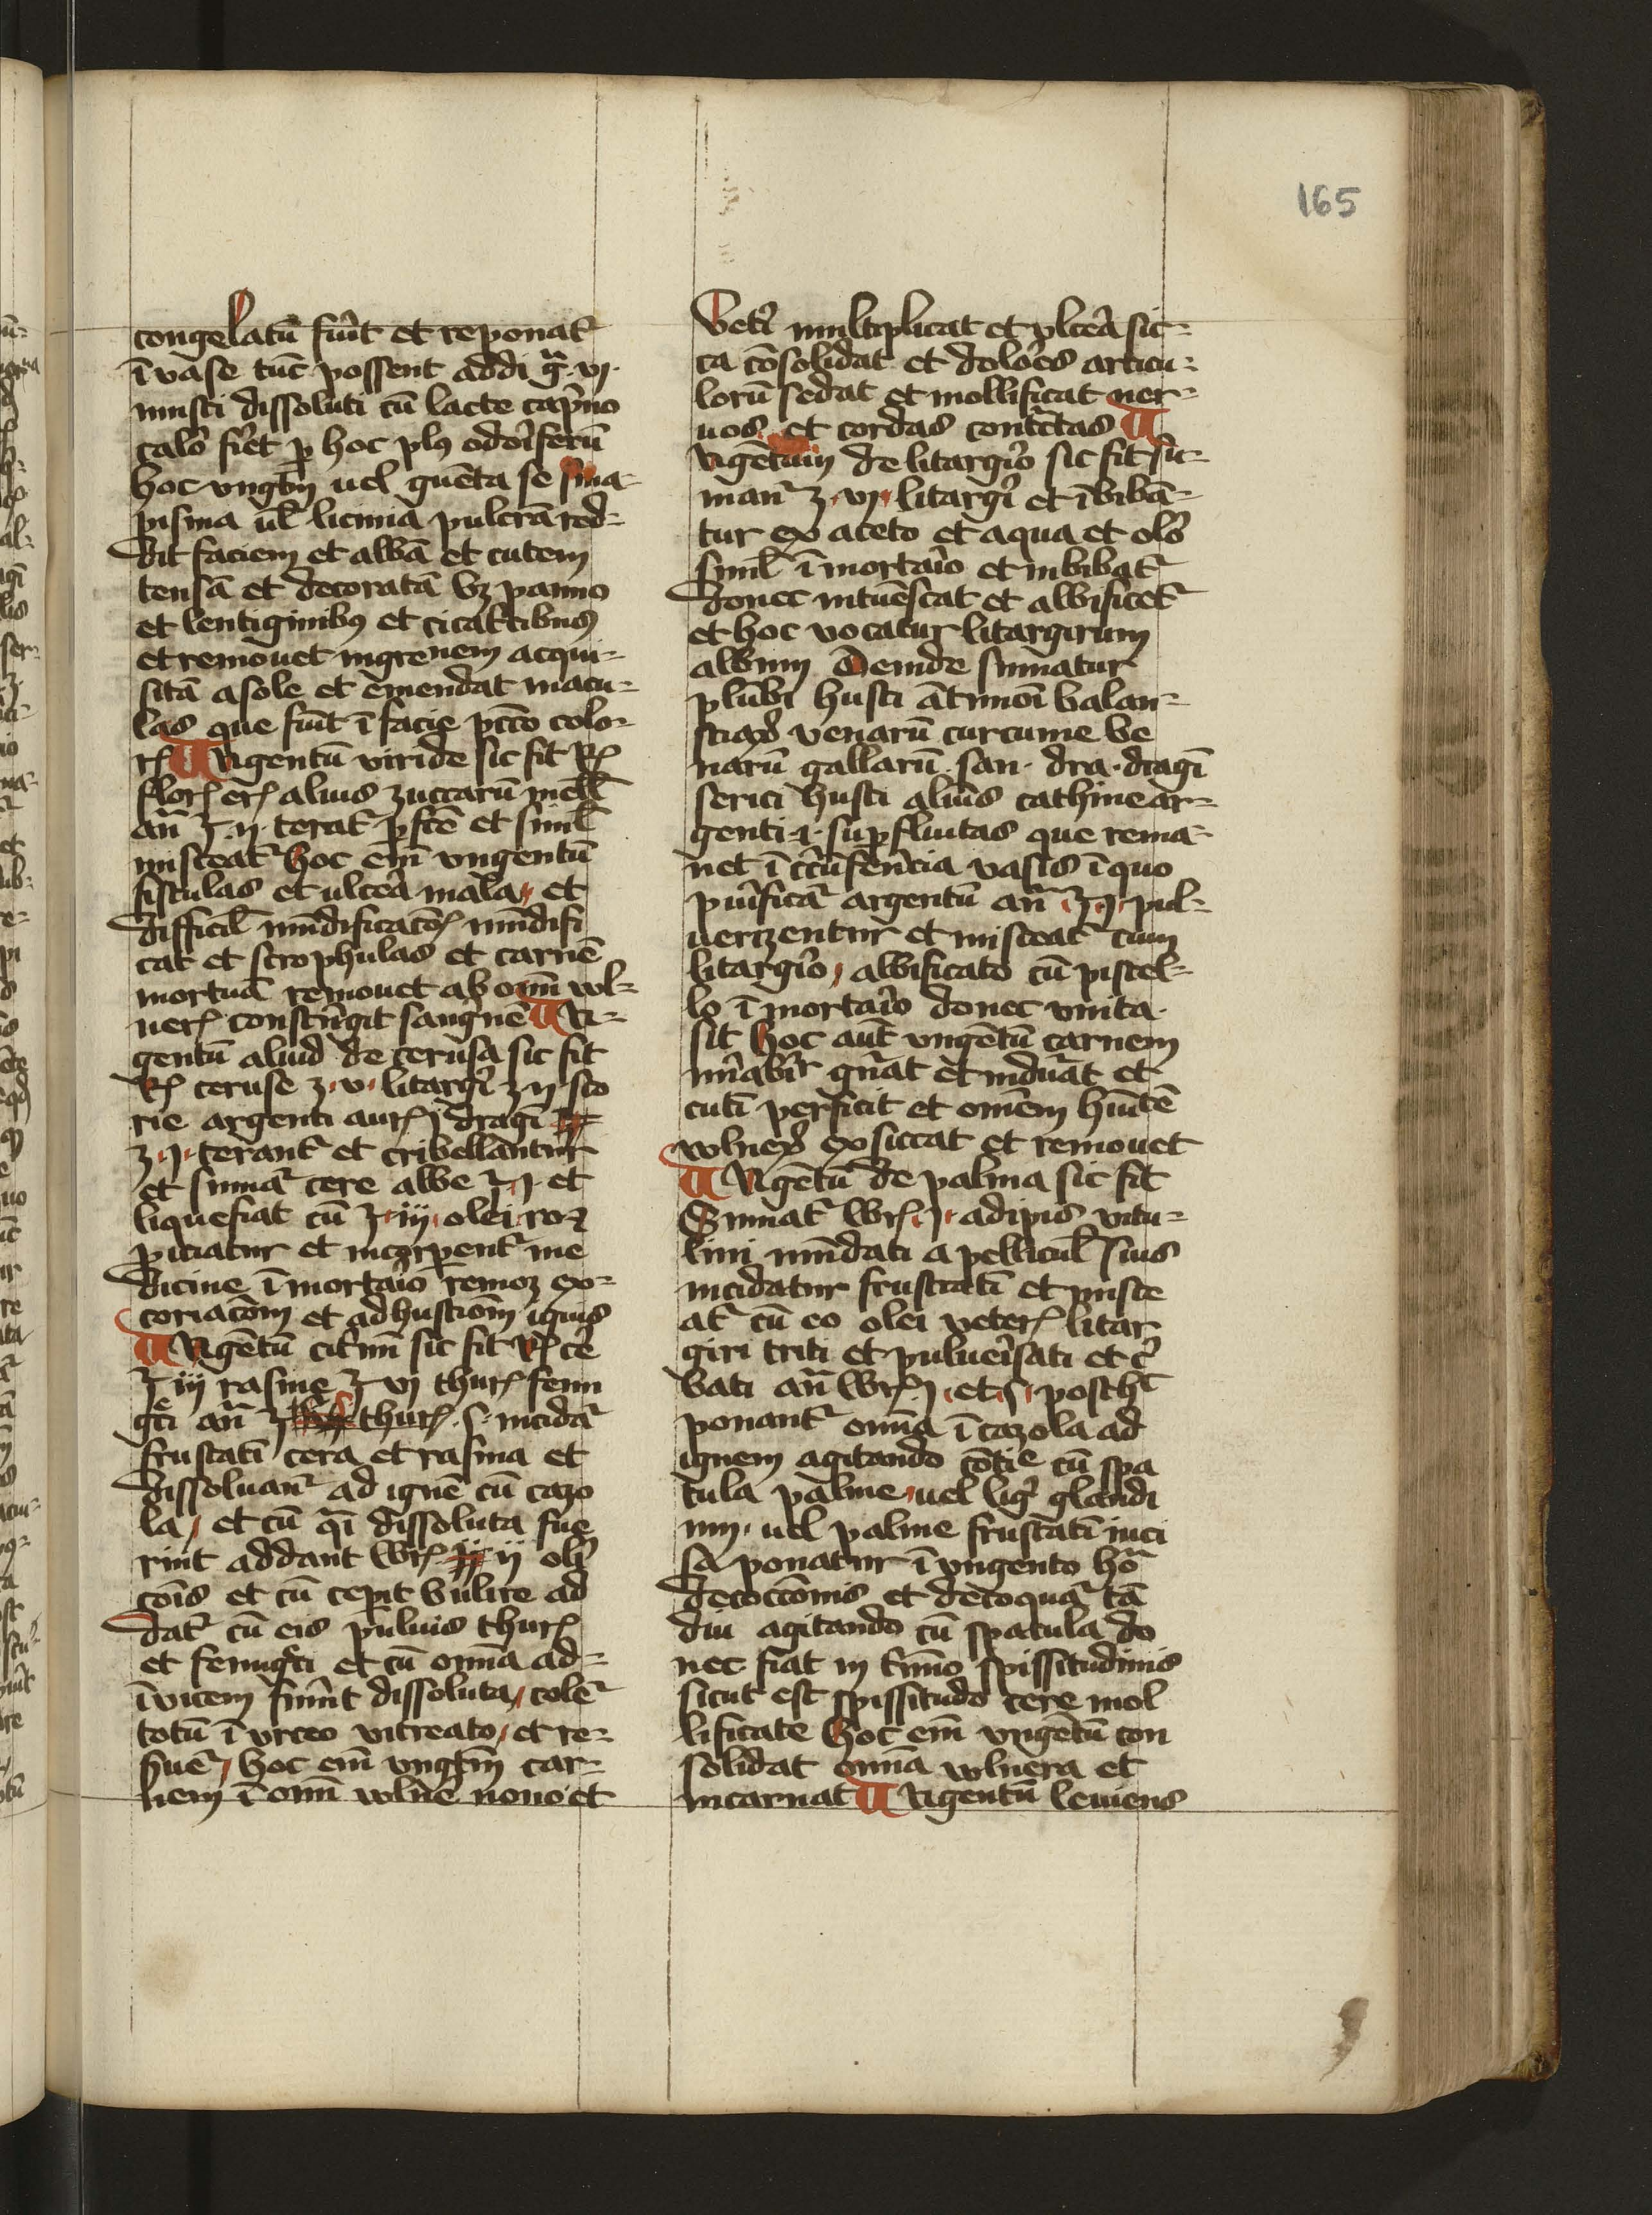 165
congelatū fuīt et reponat᷑
ī vase tūc possent addi gᷓ. vj.
musci dissoluti cū lacte cap̄no
calō fiet p̲ hoc plꝰ odoīferū
hoc vngtm̄ uel
pisma ul̄ pulcrā red=
dit faciem et albā et cutem
tensā et decoratā bꝫ panno
et lentiginibꝰ et cicat᷑cibus
et remouet nigrenem acqui=
sitā a sole et emendat macu=
las que fiūt ī facie colo=
rꝭ Vngentū viride sic fit Rꝭ
florꝭ erꝭ alius zuccarū mell̄
an̄ ℥ ij terat᷑ et simul̄
misceat᷑ hoc em̄ vngentū
fistulas et ulcera mala, et
difficil̄ mūdificatōꝭ mūdifi
cat et scrophulas et carnē
mortuā remouet ab om̄i vl=
nerꝭ constrīgit sanguinē Vn=
gentū aliud de cerusa sic fit
Rꝭ ceruse ʒ. v. litargᷓ ʒ ij sco
rie argenti aurꝭ dragī
ʒ. j. terant᷑ et cribellantur
et sumat᷑ cere albe ℥. j. et
liquefiat cū ℥. iij. olei roꝝ
piciatur et incorporent᷑ me
dicine ī mortaīo remoꝫ ex=
coriacōm et adhustiōm ignis
Vngētū cit᷑nū sic fit Rꝭ cē
℥ iij rasine ℥ vj thurꝭ fenu
gᷓci an̄ ℥ thurꝭ. s. incidat᷑
frustatī cera et rasina et
dissoluant᷑ ad ignē cū cazo
la, et cū qᷓi dissoluta fue
rint addant wrꝭ ij olī
cōis et cū cepit bulire ad
dat᷑ cū eis puluis thurꝭ
et fenugᷓci et cū om̄ia ad=
ī vicem fuīnt dissoluta, colet᷑
totū ī vrceo vitreato, et re=
suēt᷑, hoc em̄ vngtm̄ car=
nem ī om̄i vlnē nono et
Vetī multiplicat et vlcera sic=
ca cōsolidat et dolōes articu=
lorū sedat et mollificat ner=
uos et cordas contᷓctas
Vngētum de litargīo sic fit sū=
mant᷑ ʒ. vj. litargī et ībibā=
tur ex aceto et aqua et olō
simul̄ ī mortaīo et inbibat᷑
donec intuēscat et albificet᷑
et hoc vocatur litargirum
album Deinde sumatur
plūbi husti ātimōi balau=
stiaꝝ venarū curcume ve
narū gallarū. san. dra. dragī
serici husti aluīs cathime ar=
genti. i. supfluitas que rema=
net ī cīcūferēcia vasis ī quo
puīficat᷑ argentū an̄ ℥. j. pul=
uerizentur et misceat᷑ cum
litargīo, albificato cū pistel=
lo ī mortaīo donec vnita.
sit hoc aut̄ vngētū carnem
mīabīr gn̄at et induāt et
cutī perficit et omēm hūītē
vlneꝝ exsiccat et remouet
Vngētū de palma sic fit
Sumat᷑ wrꝭ. j. adipis vitu=
lini mūdati a pellicul̄ suis
incidatur frustatī et misce
at᷑ cū eo olei veterꝭ litar
giri triti et puluersati et cī
bati an̄ wrꝭ j. et. s. posthᷓ
ponant᷑ om̄ia ī cazola ad
ignem agitando cōtīe cū spa
tula palme, uel ligᷓ glandi
nij, uel palme frustatī inci
sa ponatur ī vngento hōᷓ
decoccōnis et decoquat᷑ tā
diu agitando cū spatula do
nec fiat in t᷑mīo spissitudinis
sicut est spissitudo cere mol
lificate Hoc em̄ vngētū con
solidat om̄ia vlnera et
incarnat Vngentū leniens